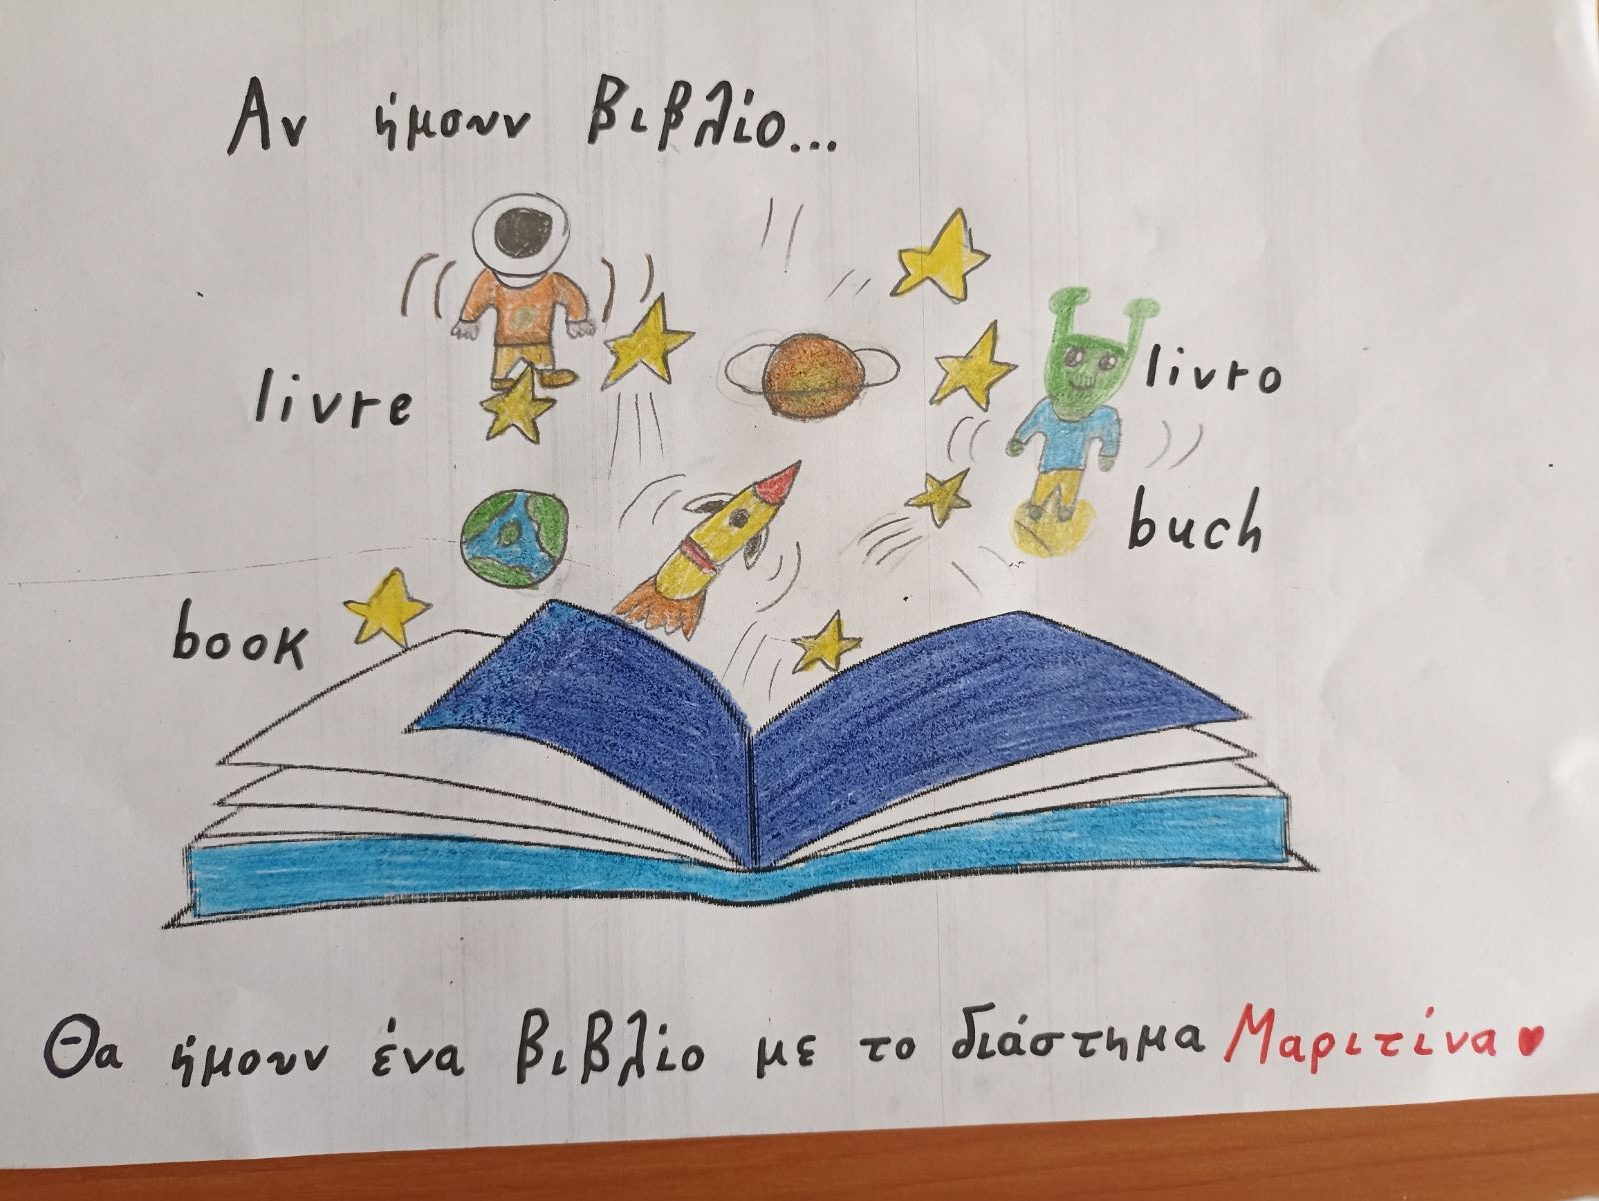 Αν ήμουν βιβλίο...
livre
livro
buch
book
Θα ήμουν ένα βιβλίο με το διάστημα Μαριτίνα